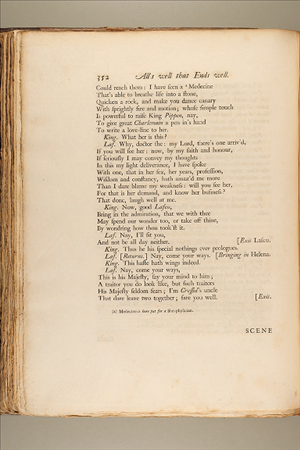 352 All's well that Ends well.
Could reach them: I have seen a ª Medecine
That's able to breathe life into a stone,
Quicken a rock, and make you dance canary
With sprightly fire and motion; whose simple touch
Is powerful to raise King Pippen, nay,
To give great Charlemain a pen in's hand
To write a love-line to her.
King. What her is this?
Laf. Why, doctor she: my Lord, there's one arriv'd,
If you will see her: now, by my faith and honour,
If seriously I may convey my thoughts
In this my light deliverance, I have spoke
With one, that in her sex, her years, profession,
Wisdom and constancy, hath amaz'd me more
Than I dare blame my weakness: will you see her,
For that is her demand, and know her business?
That done, laugh well at me.
King. Now, good Lafeu,
Bring in the admiration, that we with thee
May spend our wonder too, or take off thine,
By wondring how thou took'st it.
Laf. Nay, I'll fit you,
And not be all day neither. [Exit Lafeu.
King. Thus he his special nothings ever prologues.
Laf. [Returns.] Nay, come your ways. [Bringing in Helena.
King. This haste hath wings indeed.
Laf. Nay, come your ways,
This is his Majesty, say your mind to him;
A traitor you do look like, but such traitors
His Majesty seldom fears; I'm Cressid's uncle
That dare leave two together; fare you well. [Exit.
(a) Medecine is here put for a
SCENE